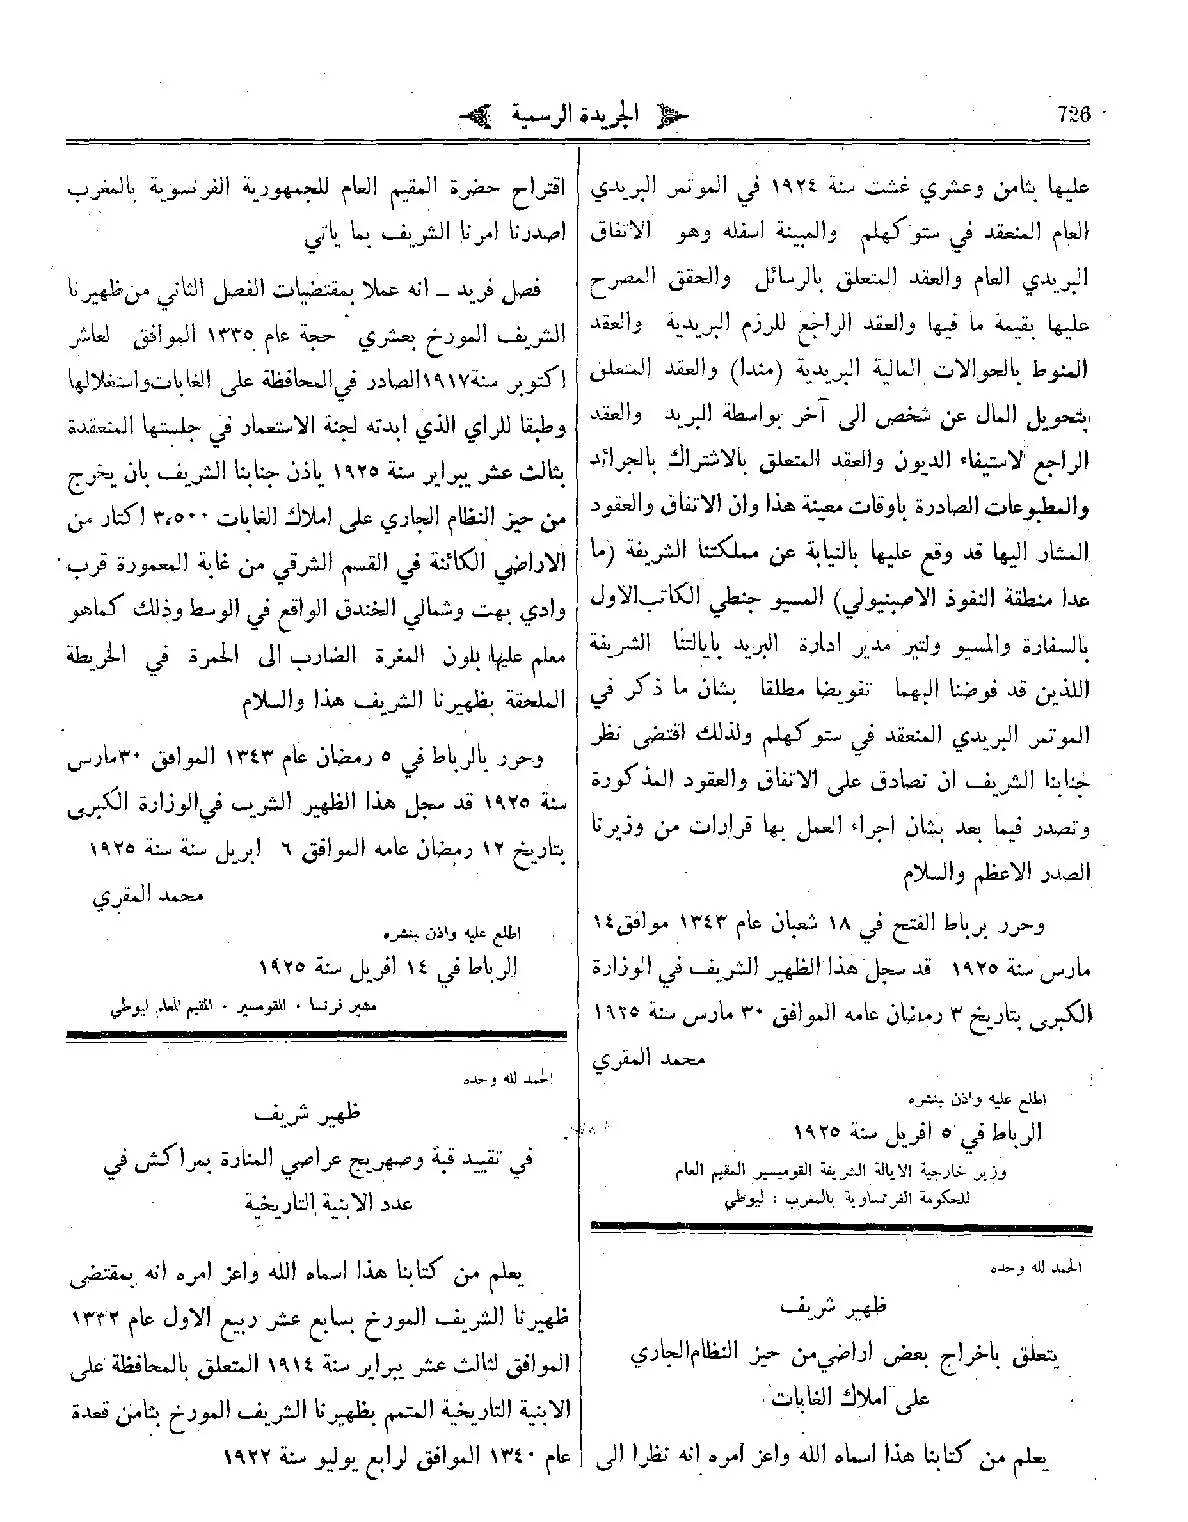 726
الجريدة الرسمية
عليها بثامن وعشري غشت سنة ١٩٢٤ في الموتمر البريدي
العام المنعقد في ستوكهلم والمبينة اسفله وهو الاتفاق
البريدي العام والعقد المتعلق بالرسائل والحقق المصرح
عليها بقيمة ما فيها والعقد الراجع للرزم البريدية والعقد
المنوط بالحوالات المالية البريدية (مندا) والعقد المتعلق
بتحويل المال عن شخص الى آخر بواسطة البريد والعقد
الراجع لاستيفاء الديون والعقد المتعلق بالاشتراك بالجرائد
والمطبوعات الصادرة باوقات معينة هذا وان الاتفاق والعقود
المشار اليها قد وقع عليها بالنيابة عن مملكتنا الشريفة (ما
عدا منطقة النفوذ الاصبنيولي) المسيو جنطي الكاتب الاول
بالسفارة والمسيو ولتير مدير ادارة البريد بايالتنا الشريفة
اللذين قد فوضنا اليهما تفويضا مطلقا بشان ما ذكر في
الموتمر البريدي المنعقد في ستوكهلم ولذلك اقتضى نظر
جنابنا الشريف ان تصادق على الاتفاق والعقود المذكورة
وتصدر فيما بعد بشان اجراء العمل بها قرارات من وزيرنا
الصدر الاعظم والسلام
وحرر برباط الفتح في ١٨ شعبان عام ١٣٤٣ موافق ١٤
مارس سنة ١٩٢٥ قد سجل هذا الظهير الشريف في الوزارة
الكبرى بتاريخ ٣ رمضان عامه الموافق ٣٠ مارس سنة ١٩٢٥
محمد المقري
اطلع عليه واذن بنشره
الرباط في ٥ افريل سنة ١٩٢٥
وزير خارجية الايالة الشريفة القومسير المقيم العام
للحكومة الفرنساوية بالمغرب : ليوطي
الحمد لله وحده
ظهير شريف
يتعلق باخراج بعض اراضي من حيز النظام الجاري
على املاك الغابات
يعلم من كتابنا هذا اسماه الله واعز امره انه نظرا الى
اقتراح حضرة المقيم العام للجمهورية الفرنسوية بالمغرب
اصدرنا امرنا الشريف بما ياتي
فصل فريد – انه عملا بمقتضيات الفصل الثاني من ظهيرنا
الشريف المورخ بعشري حجة عام ١٣٣٥ الموافق لعاشر
اكتوبر سنة ١٩١٧ الصادر في المحافظة على الغابات واستغلالها
وطبقا للراي الذي ابدته لجنة الاستعمار في جلستها المنعقدة
بثالث عشر يبراير سنة ١٩٢٥ ياذن جنابنا الشريف بان يخرج
من حيز النظام الجاري على املاك الغابات ٣،٥٠٠ اكتار من
الاراضي الكائنة في القسم الشرقي من غابة المعمورة قرب
وادي بهت وشمالي الخندق الواقع في الوسط وذلك كما هو
معلم عليها بلون المغرة الضارب الى الحمرة في الخريطة
الملحقة بظهيرنا الشريف هذا والسلام
وحرر بالرباط في ٥ رمضان عام ١٣٤٣ الموافق ٣٠ مارس
سنة ١٩٢٥ قد سجل هذا الظهير الشريف في الوزارة الكبرى
بتاريخ ١٢ رمضان عامه الموافق ٦ ابريل سنة سنة ١٩٢٥
محمد المقري
اطلع عليه واذن بنشره
الرباط في ١٤ افريل سنة ١٩٢٥
مشير فرنسا ٠ القومسير ٠ المقيم العام ليوطي
الحمد لله وحده
ظهير شريف
في تقييد قبة وصهريج عراصي المنارة بمراكش في
عدد الابنية التاريخية
يعلم من كتابنا هذا اسماه الله واعز امره انه بمقتضى
ظهيرنا الشريف المورخ بسابع عشر ربيع الاول عام ١٣٣٢
الموافق لثالث عشر يبراير سنة ١٩١٤ المتعلق بالمحافظة على
الابنية التاريخية المتمم بظهيرنا الشريف المورخ بثامن قعدة
عام ١٣٤٠ الموافق لرابع يوليو سنة ١٩٢٢